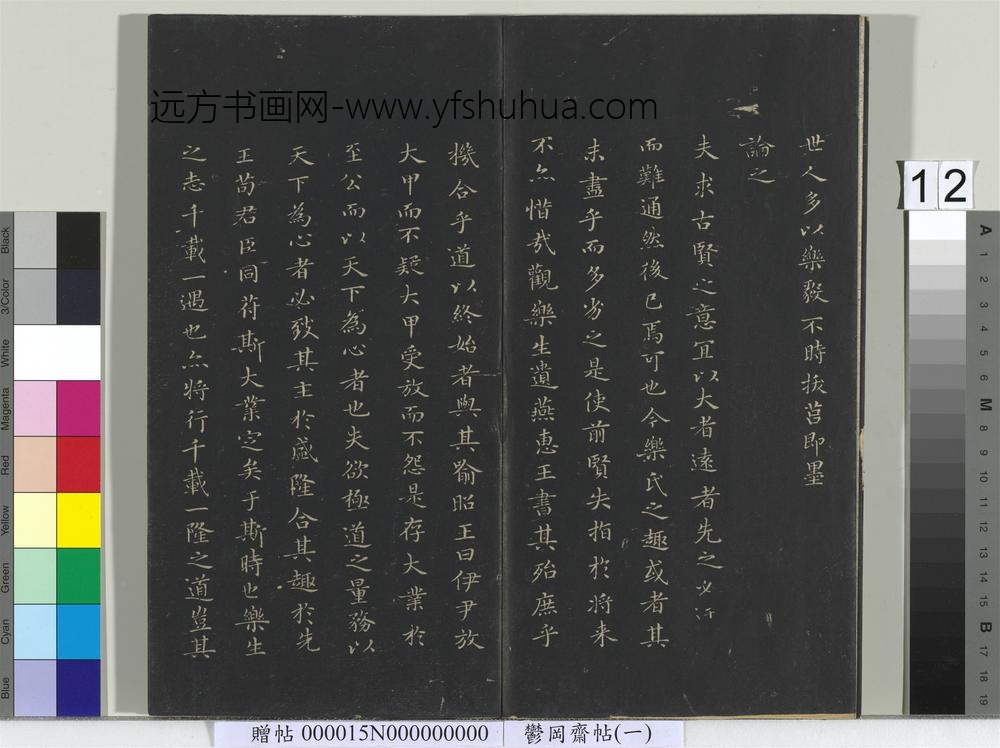 远方书画网-www.yfshuhua.com
世人多以樂毅不時拔莒即墨
論之
夫求古賢之意宜以大者遠者先之必
而難通然後已焉可也今樂氏之趣或者其
未盡乎而多劣之是使前賢失指於將来
不亦惜哉觀樂生遺燕惠王書其殆庶乎
機合乎道以終始者與其喻昭王曰伊尹放
大甲而不疑大甲受放而不怨是存大業於
至公而以天下為心者也夫欲極道之量務以
天下為心者必致其主於盛隆合其趣於先
王苟君臣同苻斯大業定矣于斯時也樂生
之志千載一遇也亦將行千載一隆之道豈其
Black
3/Color
White
Magenta
Red
Yellow
Green
Cyan
Blue
12
A
1
2
3
4
5
6
M
8
9
10
11
12
13
14
15
B
17
18
19
贈帖 000015N000000000
鬱岡齋帖(一)